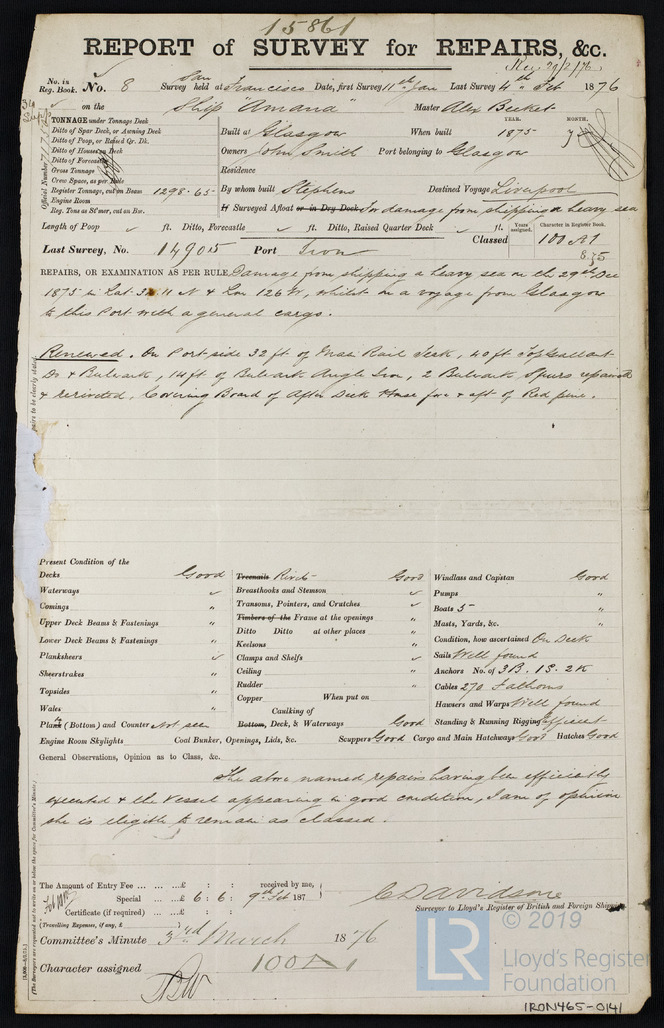 15861
REPORT of SURVEY for REPAIRS, &c.
Rec. 29/2/76
No. in Reg. Book. No. 8 Survey held at San Francisco Date, first Survey 11th Jan Last Survey 4th Feb 1876
on the Ship "Amana" Master Alex Becket
TONNAGE under Tonnage Deck
Ditto of Spar Deck, or Awning Deck
Ditto of Poop, or Raised Qr. Dk.
Ditto of Houses on Deck
Ditto of Forecastle
Gross Tonnage
Crew Space, as per Rule
Register Tonnage, cut on Beam 1298.65
Engine Room
Reg. Tons as St'mer, cut on Bm.
Official Number
YEAR. MONTH.
Built at Glasgow When built 1875 7
Owners John Smith Port belonging to Glasgow
Residence
By whom built Stephens Destined Voyage Liverpool
If Surveyed Afloat or in Dry Dock for damage from shipping a heavy sea
Length of Poop ft. Ditto, Forecastle ft. Ditto, Raised Quarter Deck ft. Classed Years assigned. Character in Register Book. 100 A1
8.75
Last Survey, No. 14905 Port Iron
REPAIRS, OR EXAMINATION AS PER RULE, Damage from shipping a heavy sea on the 29th Dec
1875 in Lat 32.11 N & Lon 126 W, whilst on a voyage from Glasgow
to this Port with a general cargo.
Renewed. On Port side 32 ft of Main Rail Teak, 40 ft Topgallant
Do & Bulwark, 14 ft of Bulwark Angle Iron, 2 Bulwark Spurs repaired
& rerivetted, Covering Board of After Deck House fore & aft of Red pine.
Present Condition of the
Decks Good
Waterways
Comings "
Upper Deck Beams & Fastenings "
Lower Deck Beams & Fastenings "
Planksheers
Sheerstrakes "
Topsides "
Wales "
Plank (Bottom) and Counter Not seen
Engine Room Skylights Coal Bunker, Openings, Lids, &c.
Treenails Rivets Good
Breasthooks and Stemson
Transoms, Pointers, and Crutches
Timbers of the Frame at the openings "
Ditto Ditto at other places "
Keelsons "
Clamps and Shelfs
Ceiling "
Rudder "
Copper When put on
Caulking of
Bottom, Deck, & Waterways Good
Scuppers Good Cargo and Main Hatchways Good Hatches Good
Windlass and Capstan Good
Pumps "
Boats 5 "
Masts, Yards, &c. "
Condition, how ascertained On Deck
Sails Well found
Anchors No. of 3B. 1S. 2K
Cables 270 Fathoms
Hawsers and Warps Well found
Standing & Running Rigging Efficient
General Observations, Opinion as to Class, &c.
The above named repairs having been efficiently
executed & the vessel appearing in good condition, I am of opinion
she is eligible to remain as classed.
The Amount of Entry Fee ... ... ...£ : : received by me,
Special ... ...£ 6 : 6 : 9th Feb 187
Certificate (if required) ... ...£ : :
(Travelling Expenses, if any, £ )
C Davidson
Surveyor to Lloyd's Register of British and Foreign Shipping
Committee's Minute 3rd March 1876
Character assigned 100 A 1
(The Surveyors are requested not to write on or below the space for Committee's Minute.)
LR © 2019
Lloyd's Register
Foundation
IRON465-0141